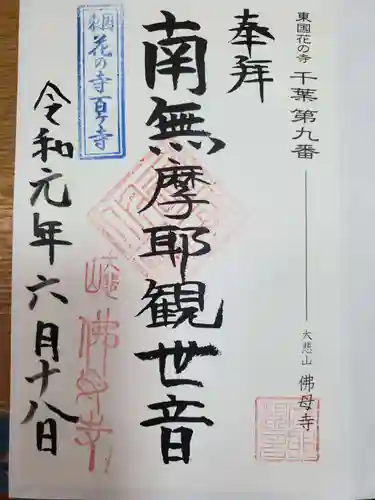 東国花の寺 千葉第九番
大悲山 佛母寺
奉拜
南無摩耶観世音
東国
花の寺百ヶ寺
令和元年六月十八日
佛母寺